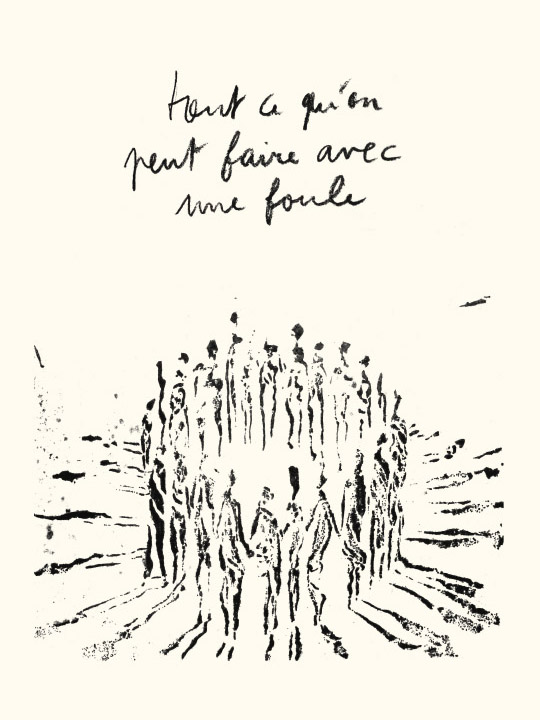 tout ce qu'on
peut faire avec
une foule